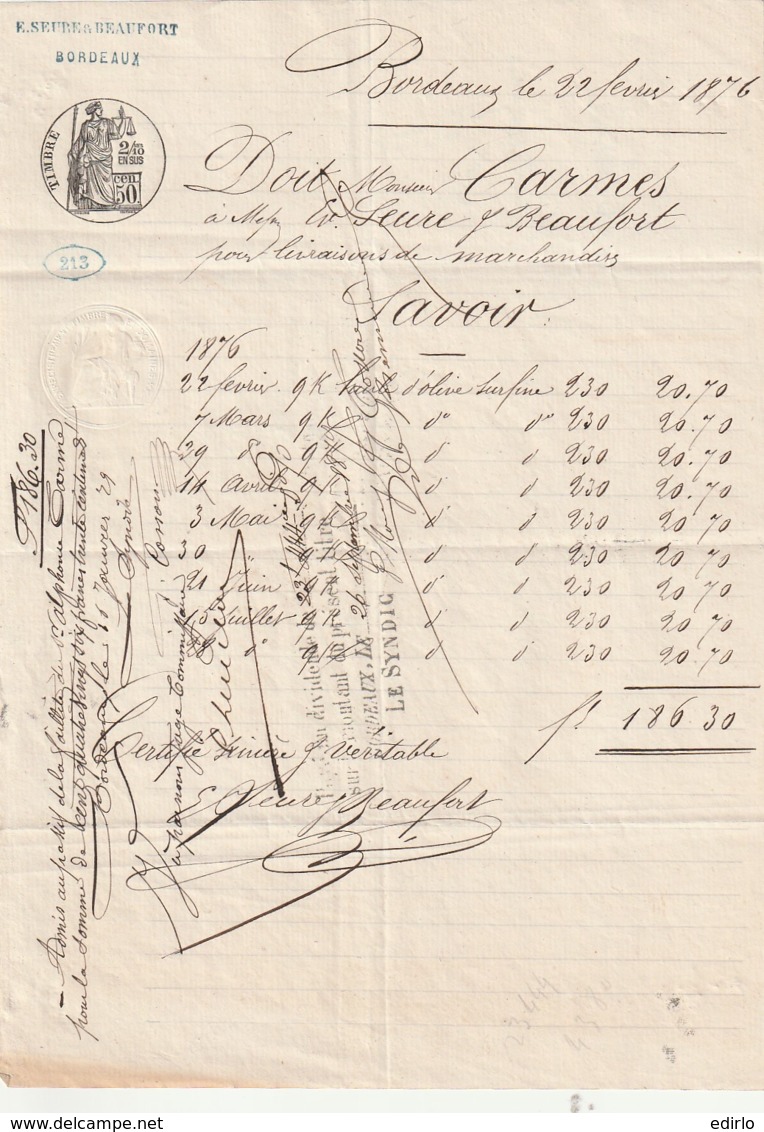 E. SEURE & BEAUFORT
BORDEAUX
Bordeaux le 22 fevrier 1876
TIMBRE
2/10
EN SUS
50 CEN
213
Doit Monsieur Carmes
à M. Ed. Seure & Beaufort
pour livraisons de marchandises
Savoir
1876
22 fevrier 9 K huile d'olive surfine 230 20.70
7 Mars 9 K d° d° 230 20.70
29 d 9 K d d 230 20.70
14 Avril 9 K d d 230 20.70
3 Mai 9 K d d 230 20.70
30 " 9 K d d 230 20.70
21 Juin 9 K d d 230 20.70
15 Juillet 9 K d d 230 20.70
d 9 K d d 230 20.70
fs 186.30
Certifié sincère & véritable
E. Seure & Beaufort
F 186.30
Admis au passif de la faillite du Sr Alphonse Carmes
pour la somme de cent quatre vingt six francs trente centimes
Bordeaux le Janvier 79
Syndic
Vu par nous juge Commissaire
un dividende de
sur le montant du présent titre
BORDEAUX, LE 26 septembre 1879
LE SYNDIC
23 444
edirlo